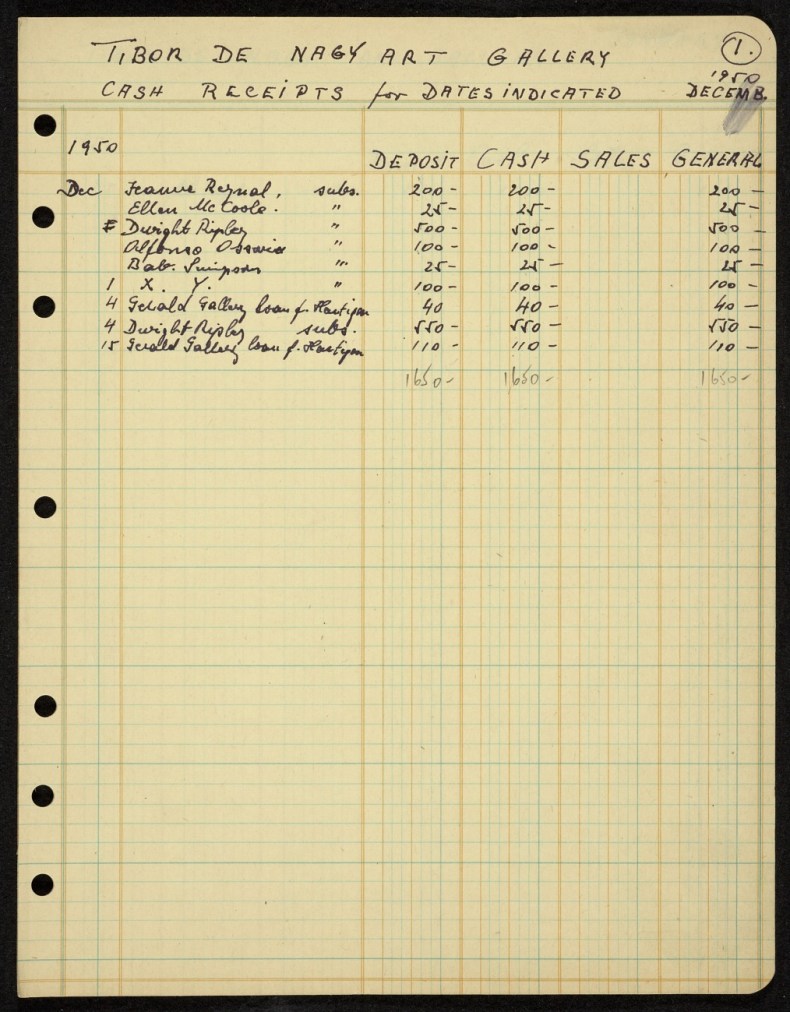 TIBOR DE NAGY ART GALLERY 1.
CASH RECEIPTS for DATES INDICATED 1950 DECEMB.
1950
DEPOSIT CASH SALES GENERAL
Dec Jeanne Reynal, subs. 200- 200- 200-
Ellen McCoole. " 25- 25- 25-
Dwight Ripley " 500- 500- 500-
Alfonso Ossorio " 100- 100- 100-
Bab. Simpson " 25- 25- 25-
1 X. Y. " 100- 100- 100-
4 Gerald Gallery loan f. Hartigan 40 40- 40-
4 Dwight Ripley subs. 550- 550- 550-
15 Gerald Gallery loan f. Hartigan 110- 110- 110-
1650- 1650- 1650-